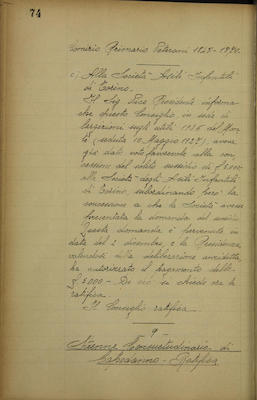 74
Comizio Primario Veterani 1848-1870.
c) Alla Società Asili Infantili
di Torino.
Il Sig. Vice Presidente informa
che questo Consiglio, in sede di
elargizioni sugli utili 1926 del Mon-
te (seduta 10 Maggio 1927) aveva
già dato voto favorevole alla con-
cessione del solito sussidio di £ 5000
alla Società degli Asili Infantili
di Torino, subordinando però la
concessione a che la Società avesse
presentata la domanda del sussidio.
Questa domanda è pervenuta in
data del 2 dicembre e la Presidenza,
valendosi della deliberazione anzidetta,
ha autorizzato il pagamento delle
£ 5000 - Di ciò si chiede ora la
ratifica.
Il Consiglio ratifica.
9 -
Strenne Consuetudinarie di
Capodanno - Ratifica